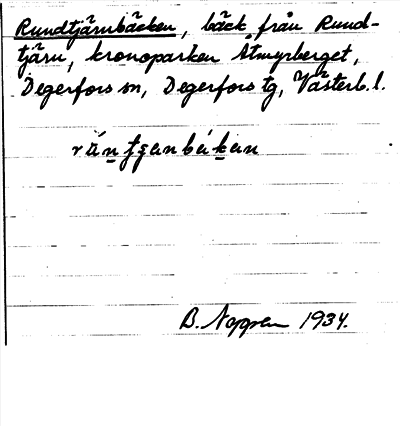 Rundtjärnbäcken, bäck från Rund-
tjärn, kronoparken Åtmyrberget,
Degerfors sn, Degerfors tg, Västerb. l.
B. 1934.